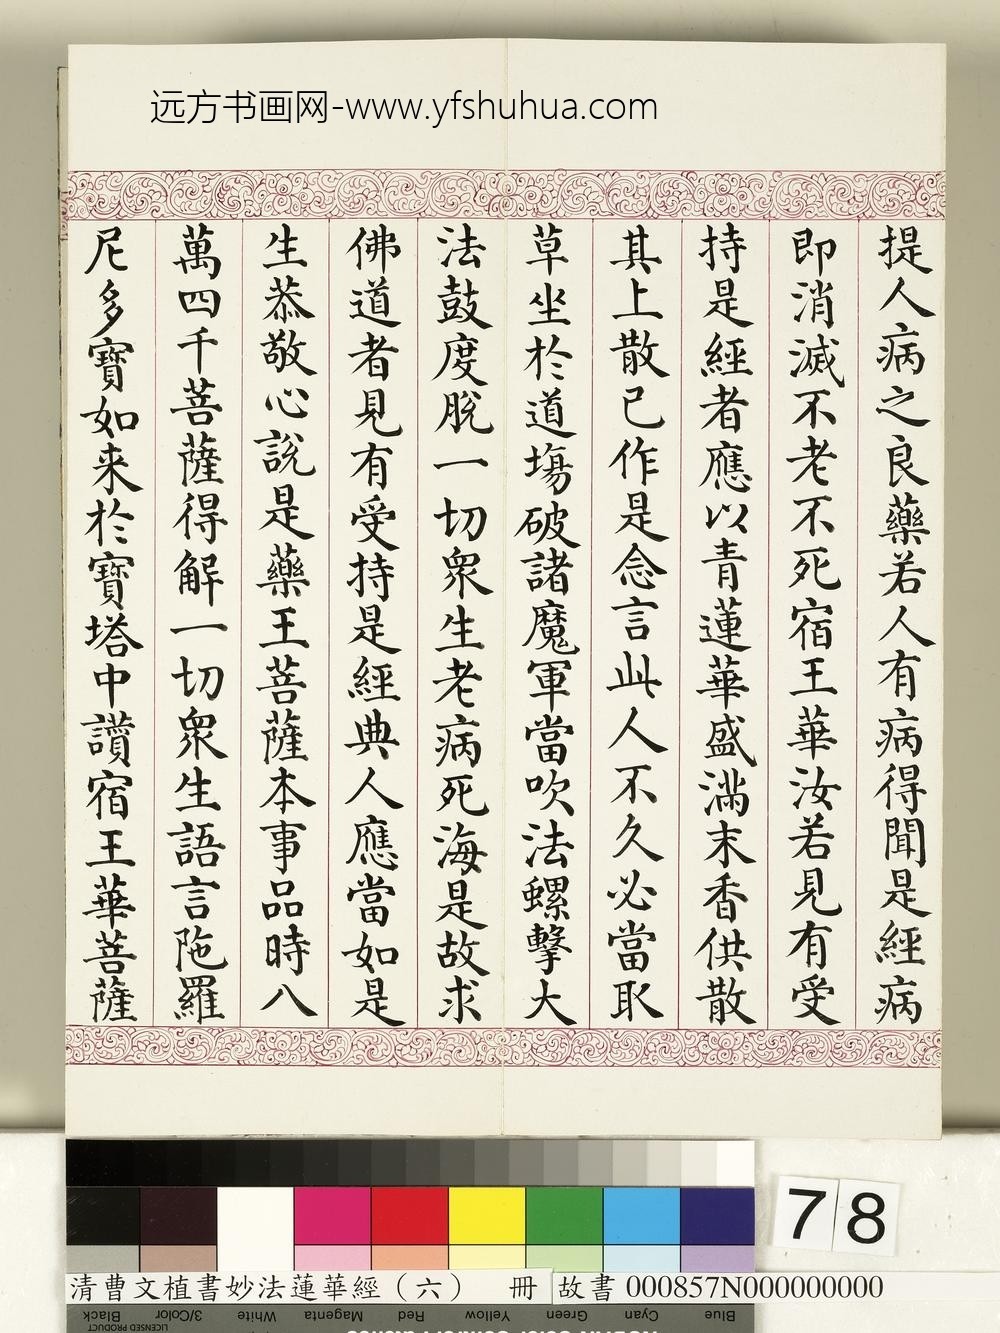 远方书画网-www.yfshuhua.com
提人病之良藥若人有病得聞是經病
即消滅不老不死宿王華汝若見有受
持是經者應以青蓮華盛滿末香供散
其上散已作是念言此人不久必當取
草坐於道場破諸魔軍當吹法螺擊大
法鼓度脫一切衆生老病死海是故求
佛道者見有受持是經典人應當如是
生恭敬心說是藥王菩薩本事品時八
萬四千菩薩得解一切衆生語言陁羅
尼多寶如来於寶塔中讚宿王華菩薩
78
清曹文植書妙法蓮華經（六） 冊 故書 000857N000000000
Black 3/Color White Magenta Red Yellow Green Cyan Blue
LICENSED PRODUCT